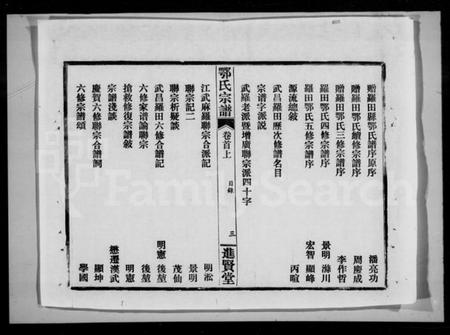 贈羅田縣鄂氏譜序原序 潘亮功
贈羅田鄂氏續修宗譜序 周慶成
贈羅田鄂氏三修宗譜序 李作哲
羅田鄂氏四修宗譜序 景明 滌川
羅田鄂氏五修宗譜序 宏智 顯峰
源流總敍 丙暄
武昌羅田歷次修譜名目
宗譜字派說
武羅老派暨增廣聯宗派四十字
鄂氏宗譜 卷首上 目錄 三 進賢堂
江武麻羅聯宗合派記 明淞
聯宗記二 景明
聯宗析疑談 茂仙
武昌羅田六修合譜記 明憲
六修家譜論聯宗 後堃
搶救修復宗譜敍 明憲
宗譜淺談 懋遷漢武
慶賀六修聯宗合譜詞 顯坤
六修宗譜頌 學國
FamilySearch